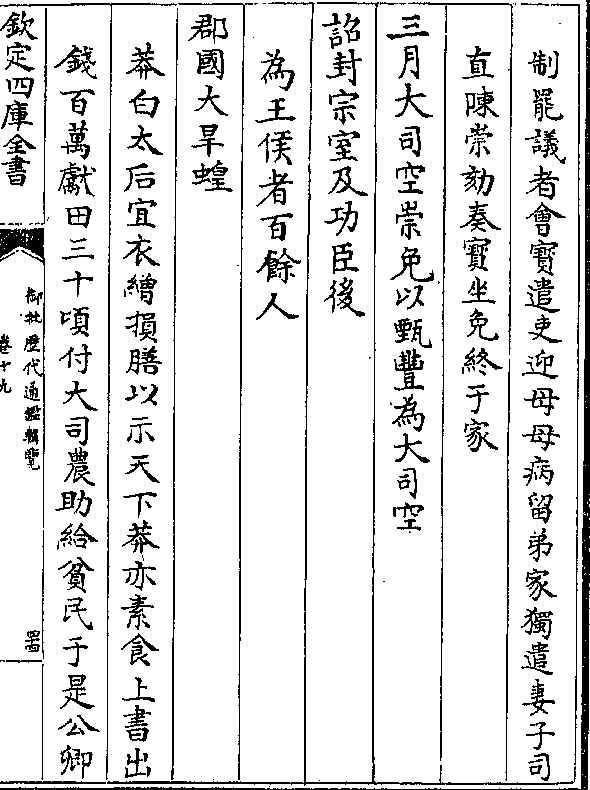 制罷議者會寳遣吏迎母母病留弟家獨遣妻子司
直陳崇劾奏寳坐免終于家
三月大司空崇免以甄豐為大司空
詔封宗室及功臣後
為王侯者百餘人
郡國大旱蝗
莽白太后宜衣繒損膳以示天下莽亦素食上書出
錢百萬獻田三十頃付大司農助給貧民于是公卿
欽定四庫全書
御批歷代通鑑輯覽
卷十九